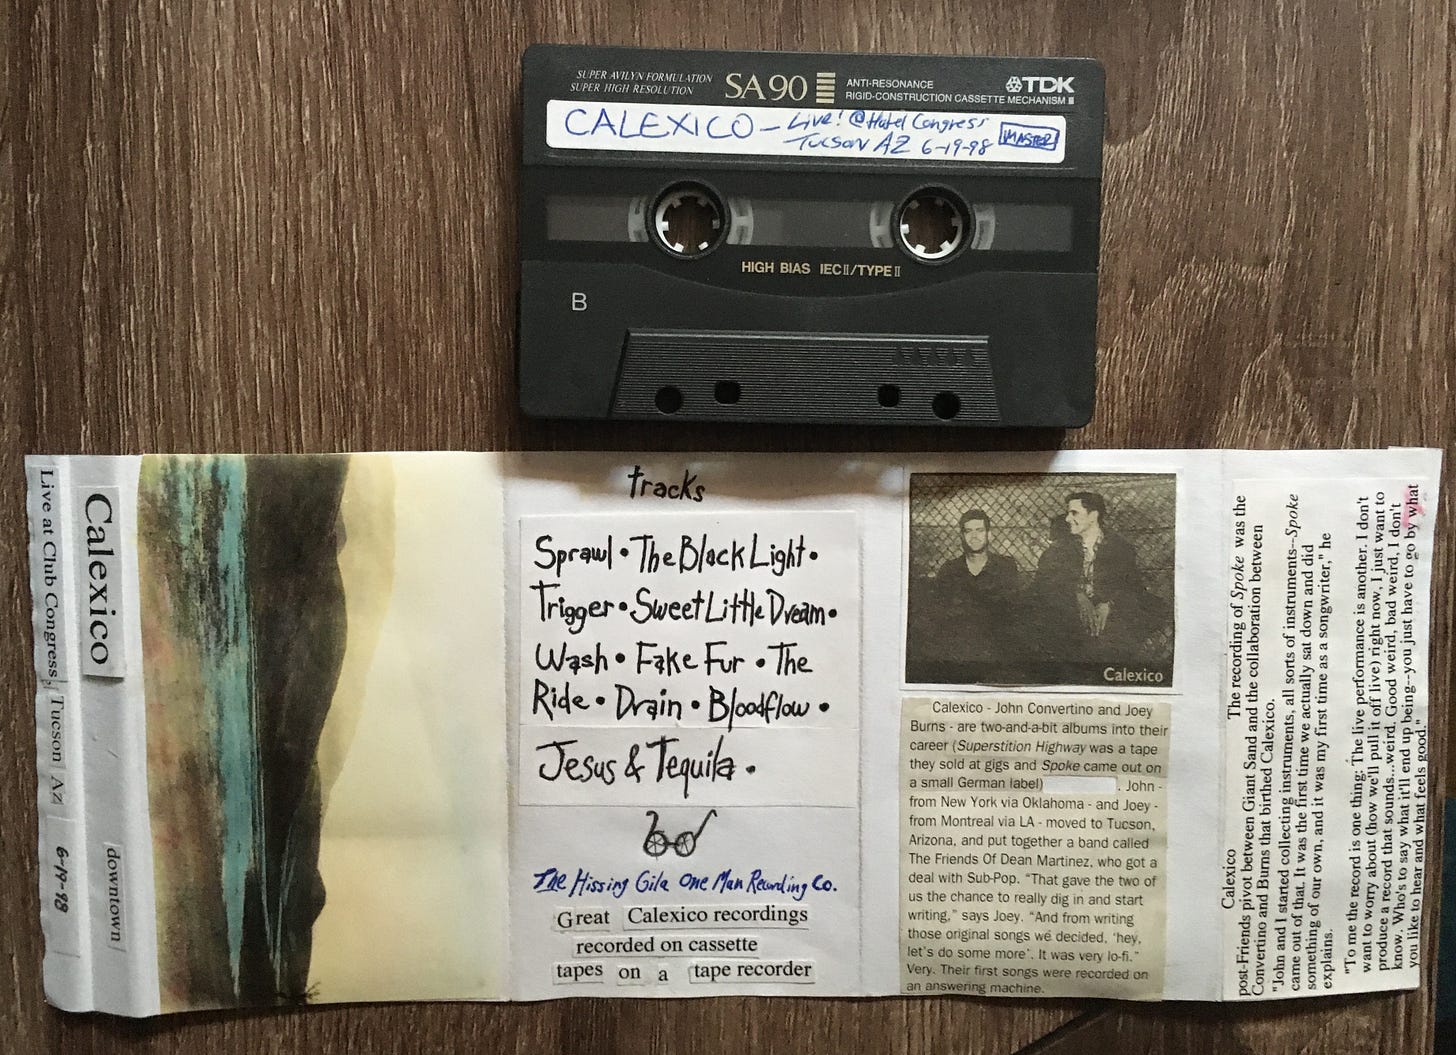 SUPER AVILYN FORMULATION
SUPER HIGH RESOLUTION
SA90
ANTI-RESONANCE
RIGID-CONSTRUCTION CASSETTE MECHANISM
TDK
CALEXICO - Live! @ Hotel Congress
Tucson AZ 6-19-98
MASTER
HIGH BIAS IECII/TYPE II
B
Live at Club Congress, Tucson AZ 6-19-98
Calexico downtown
tracks
Sprawl • The Black Light •
Trigger • Sweet Little Dream •
Wash • Fake Fur • The
Ride • Drain • Bloodflow •
Jesus & Tequila •
The Hissing Gila One Man Recording Co.
Great Calexico recordings
recorded on cassette
tapes on a tape recorder
Calexico
Calexico - John Convertino and Joey
Burns - are two-and-a-bit albums into their
career (Superstition Highway was a tape
they sold at gigs and Spoke came out on
a small German label) . John -
from New York via Oklahoma - and Joey -
from Montreal via LA - moved to Tucson,
Arizona, and put together a band called
The Friends Of Dean Martinez, who got a
deal with Sub-Pop. "That gave the two of
us the chance to really dig in and start
writing," says Joey. "And from writing
those original songs we decided, 'hey,
let's do some more'. It was very lo-fi."
Very. Their first songs were recorded on
an answering machine.
Calexico The recording of Spoke was the
post-Friends pivot between Giant Sand and the collaboration between
Convertino and Burns that birthed Calexico.
"John and I started collecting instruments, all sorts of instruments--Spoke
came out of that. It was the first time we actually sat down and did
something of our own, and it was my first time as a songwriter," he
explains.
"To me the record is one thing: The live performance is another. I don't
want to worry about (how we'll pull it off live) right now, I just want to
produce a record that sounds...weird. Good weird, bad weird, I don't
know. Who's to say what it'll end up being--you just have to go by what
you like to hear and what feels good."